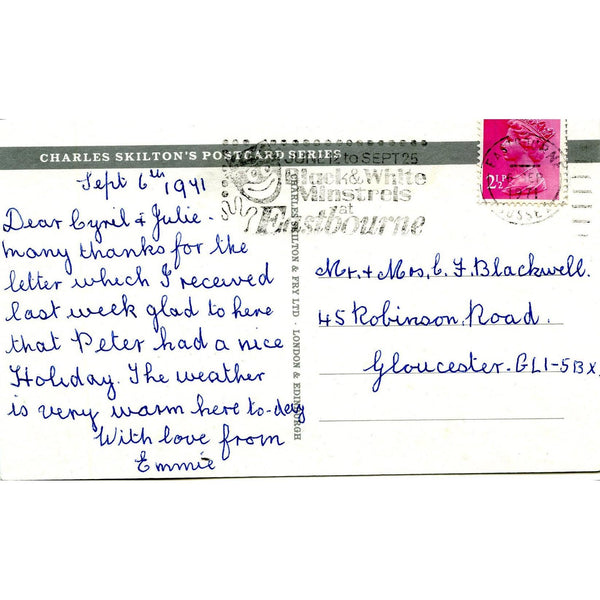 CHARLES SKILTON'S POSTCARD SERIES
JUNE 12 to SEPT 25
Black & White
Minstrels
at
Eastbourne
2½P
EASTBOURNE
1971
SUSSEX
Sept 6th 1971
Dear Cyril & Julie -
many thanks for the
letter which I received
last week glad to here
that Peter had a nice
Holiday. The weather
is very warm here to-day
With love from
Emmie
CHARLES SKILTON & FRY LTD · LONDON & EDINBURGH
Mr. & Mrs, C F Blackwell.
45 Robinson Road.
Gloucester. GL1-5BX